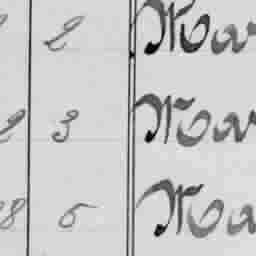 2 Mar
2 3 Mar
8 5 Mar